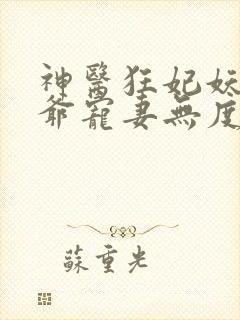 神醫狂妃妖
爺寵妻無度
蘇重光